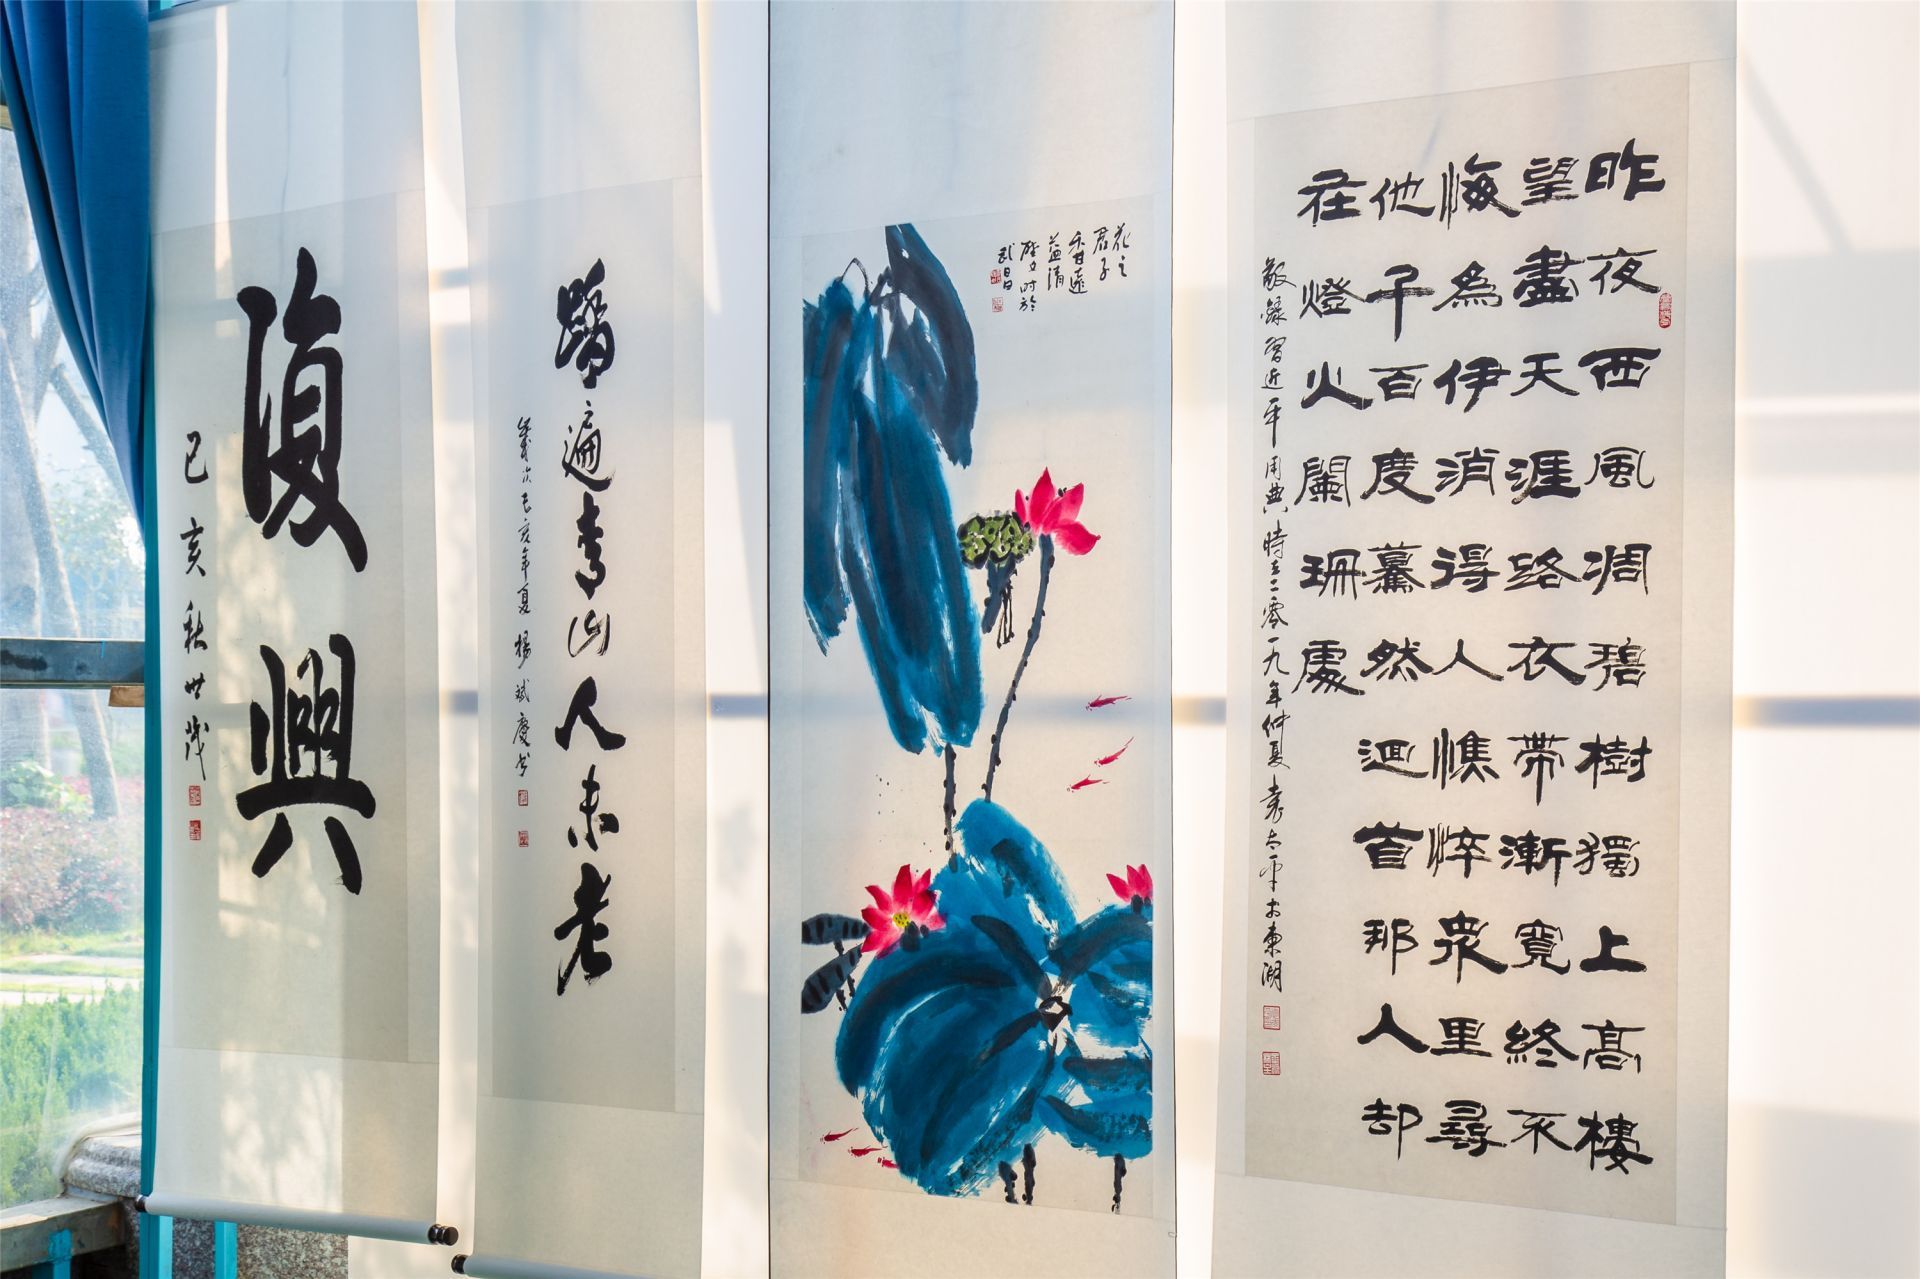 昨夜西風凋碧樹獨上高樓
望盡天涯路衣帶漸寬終不
悔為伊消得人憔悴衆里尋
他千百度驀然迴首那人却
在燈火闌珊處
敬錄習近平用典時在二零一九年仲夏袁太平於東湖
花之
君子
香遠
益清
时於
武昌
踏遍青山人未老
歲次己亥年夏楊斌慶书
復興
己亥秋世茂